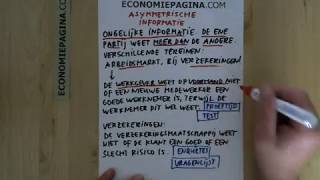 ECONOMIEPAGINA.COM
ASYMMETRISCHE
INFORMATIE
ONGELIJKE INFORMATIE. DE ENE
PARTIJ WEET MEER DAN DE ANDERE.
VERSCHILLENDE TERREINEN:
ARBEIDSMARKT, BIJ VERZEKERINGEN
DE WERKGEVER WEET OP VOORHAND NIET
OF EEN NIEUWE MEDEWERKER EEN
GOEDE WERKNEMER IS, TERWIJL DE
WERKNEMER DIT WEL WEET. PROEFTIJD
TEST
VERZEKERINGEN:
DE VERZEKERINGSMAATSCHAPPIJ WEET
NIET OF DE KLANT EEN GOED OF EEN
SLECHT RISICO IS. ENQUETES
VRAGENLIJST
ECONOMIEPAGINA.COM